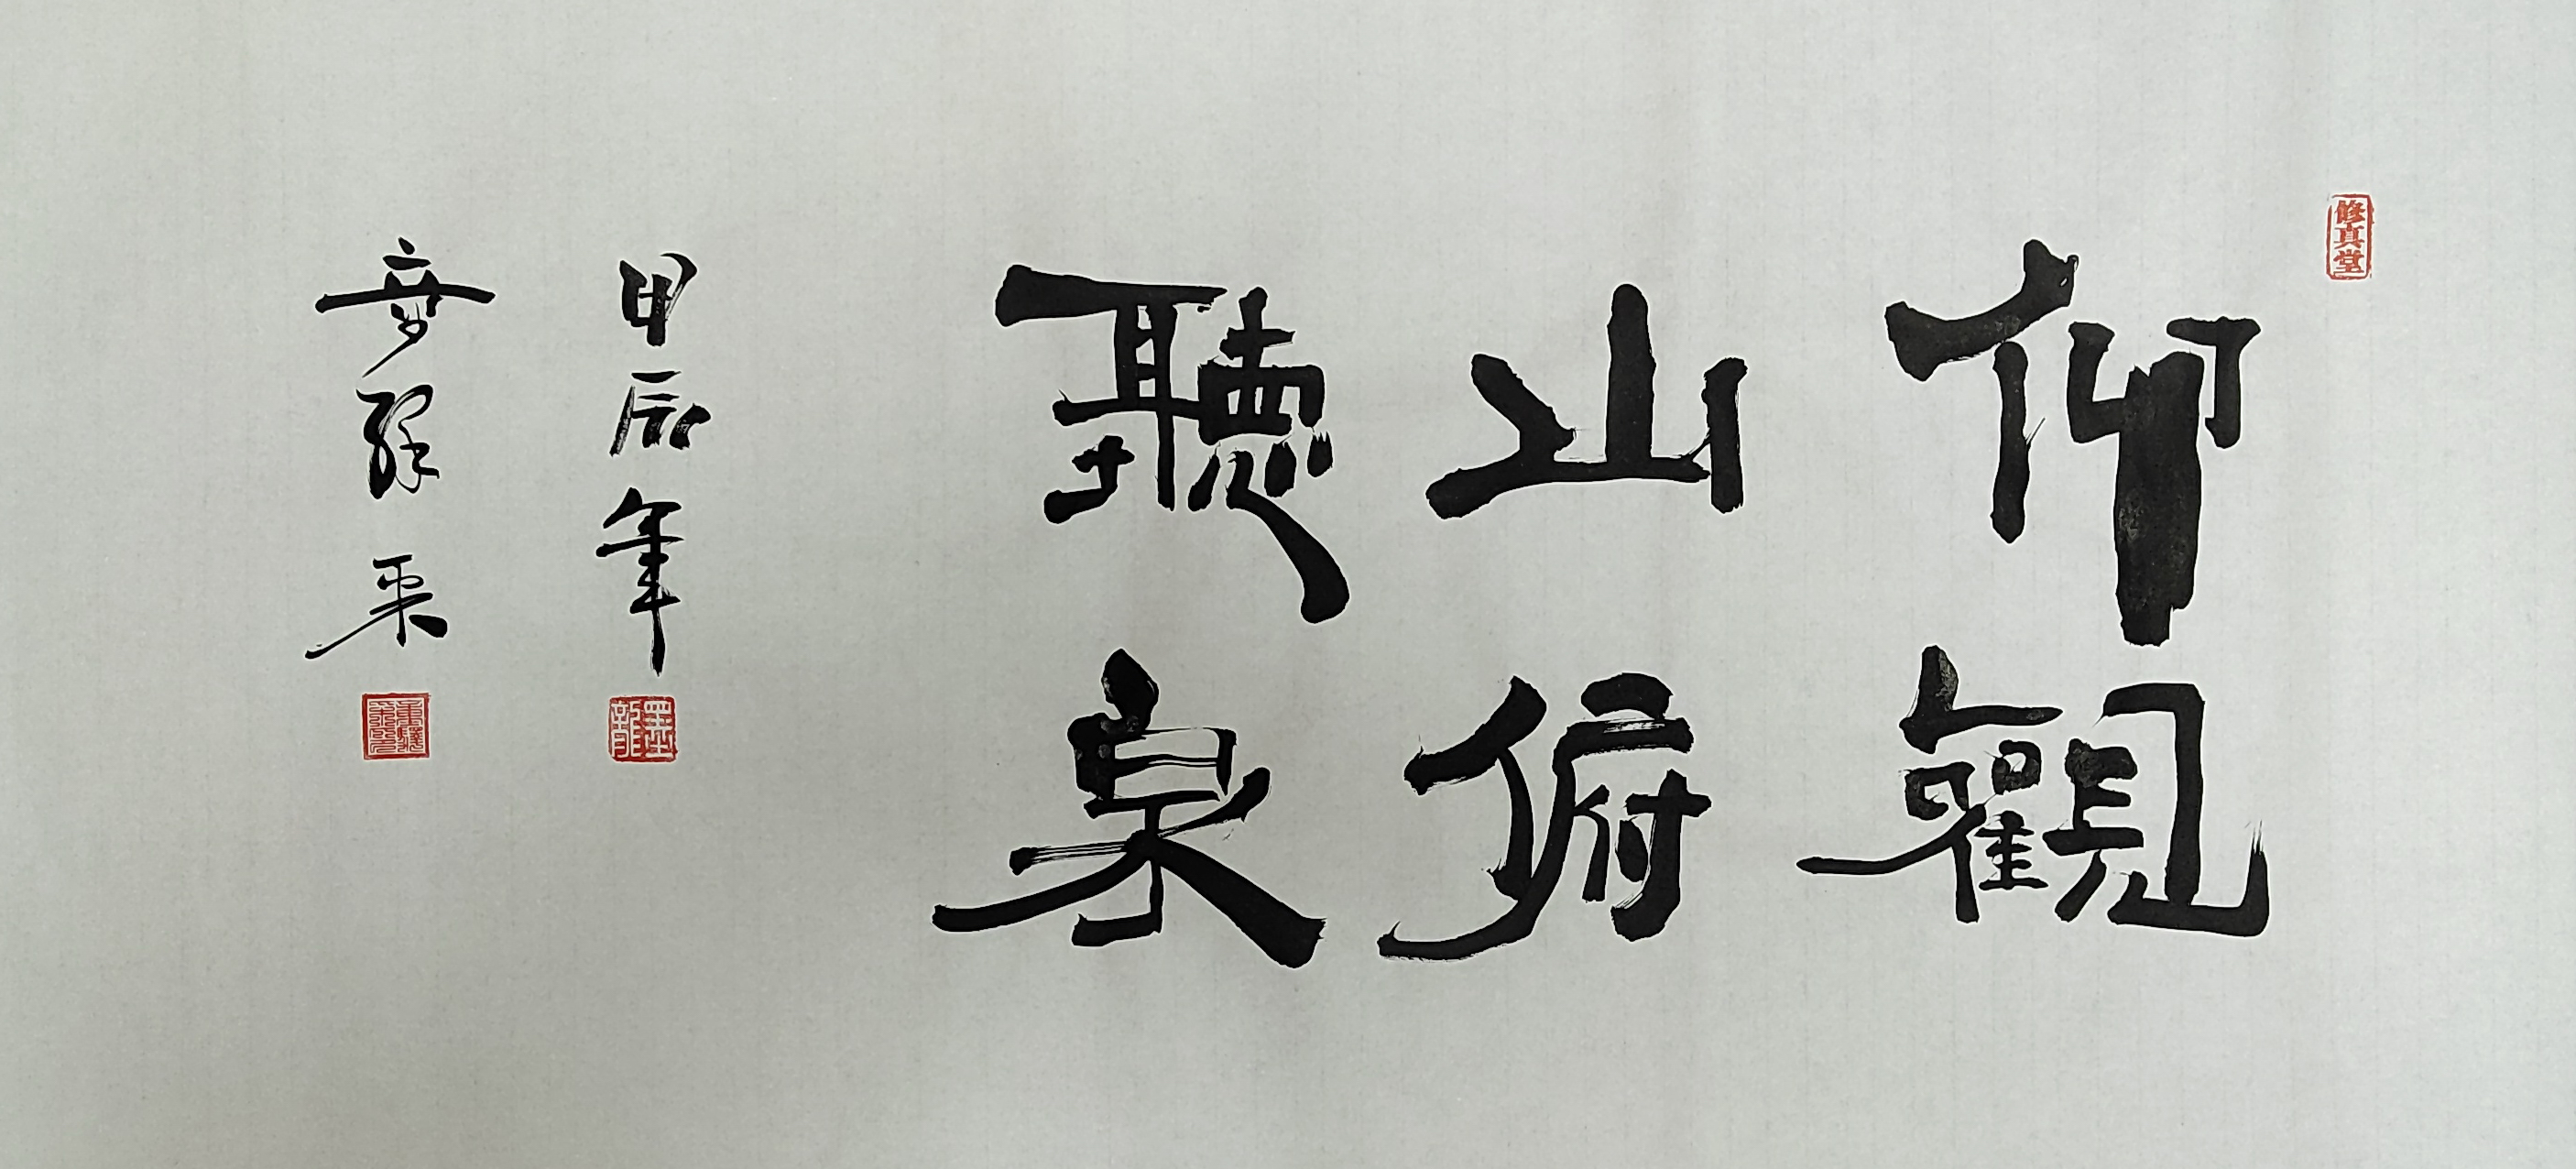 修真堂
仰觀
山俯
聽泉
甲辰年
墨龍